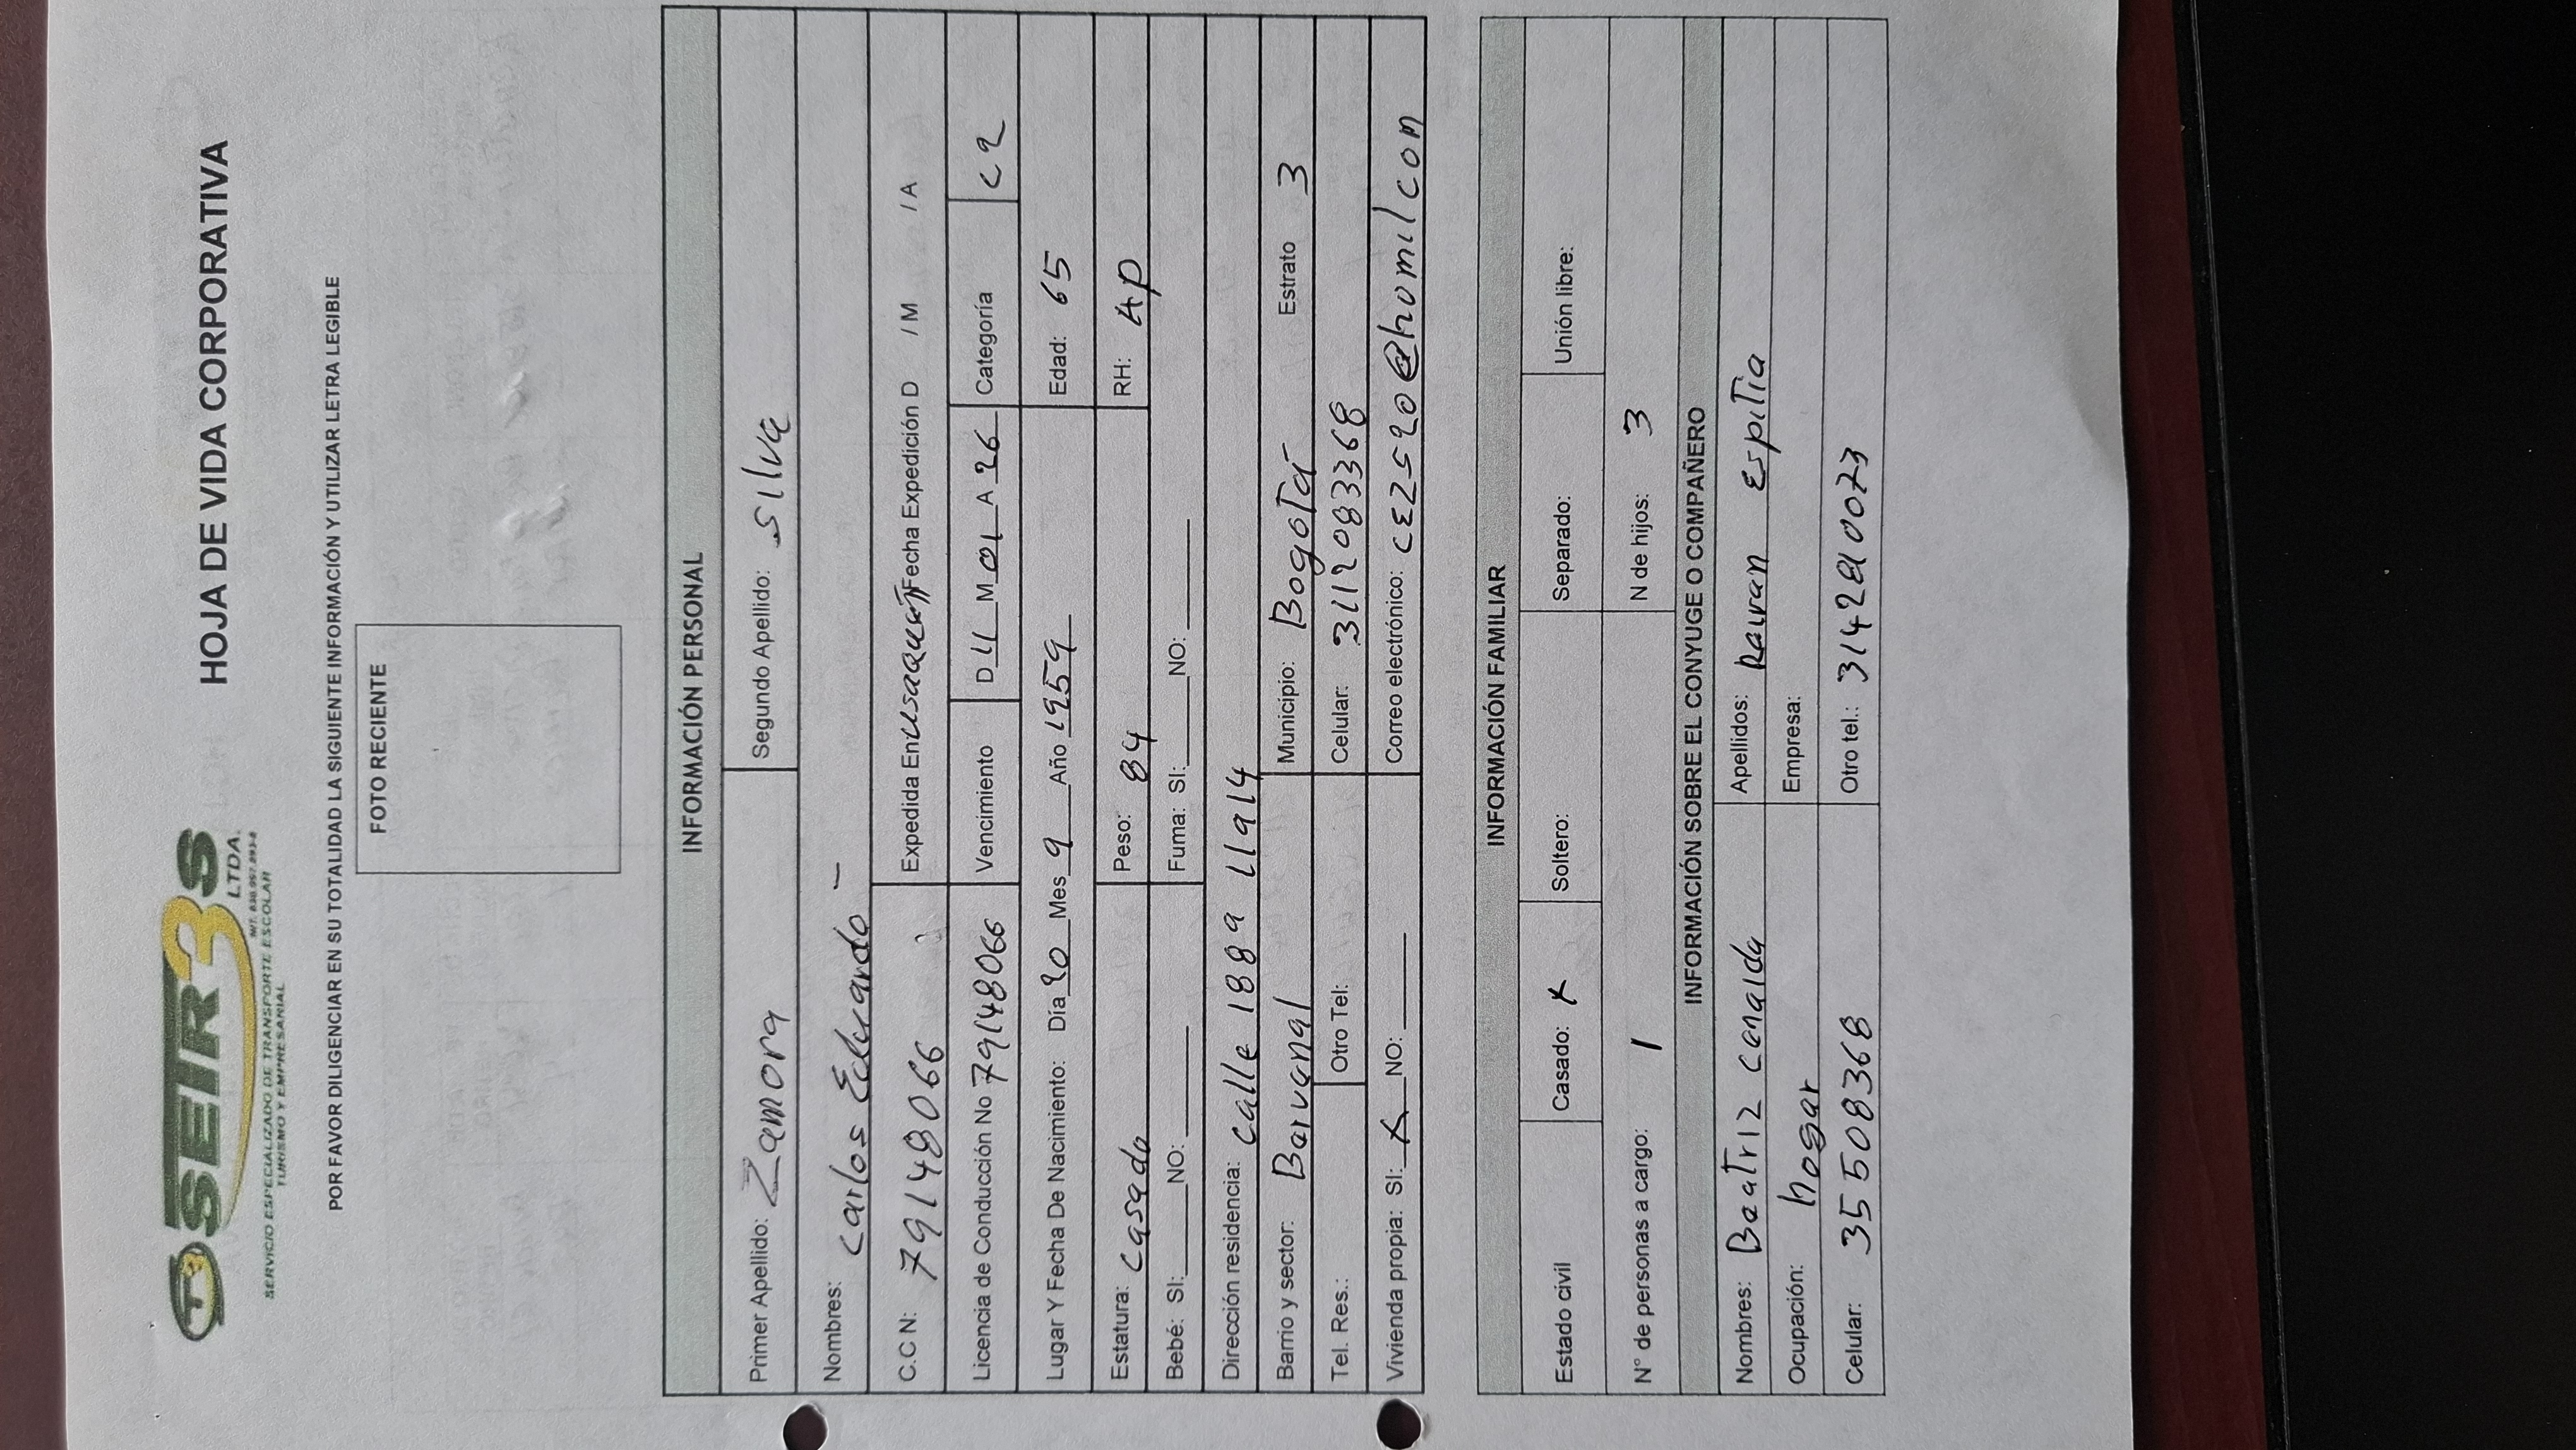 SEIR3S
LTDA.
NIT. 830.957.893-8
SERVICIO ESPECIALIZADO DE TRANSPORTE ESCOLAR
TURISMO Y EMPRESARIAL
HOJA DE VIDA CORPORATIVA
POR FAVOR DILIGENCIAR EN SU TOTALIDAD LA SIGUIENTE INFORMACIÓN Y UTILIZAR LETRA LEGIBLE
FOTO RECIENTE
INFORMACIÓN PERSONAL
Primer Apellido: Zamora Segundo Apellido: silva
Nombres: carlos Eduardo –
C.C N: 79148066 Expedida En: Fecha Expedición D /M /A
Licencia de Conducción No 79148066 Vencimiento D 11 M 01 A 26 Categoría c2
Lugar Y Fecha De Nacimiento: Día 20 Mes 9 Año 1959 Edad: 65
Estatura: casado Peso: 84 RH: Ap
Bebé: SI:____NO:____ Fuma: SI:____NO:____
Dirección residencia: calle 188a 11a14
Barrio y sector: Barvanal Municipio: Bogotá Estrato 3
Tel. Res.: Otro Tel: Celular: 3112083368
Vivienda propia: SI: X NO:____ Correo electrónico: cezs20@homilcom
INFORMACIÓN FAMILIAR
Estado civil Casado: X Soltero: Separado: Unión libre:
N° de personas a cargo: 1 N de hijos: 3
INFORMACIÓN SOBRE EL CONYUGE O COMPAÑERO
Nombres: Beatriz cenaida Apellidos: Espitia
Ocupación: hogar Empresa:
Celular: 35508368 Otro tel.: